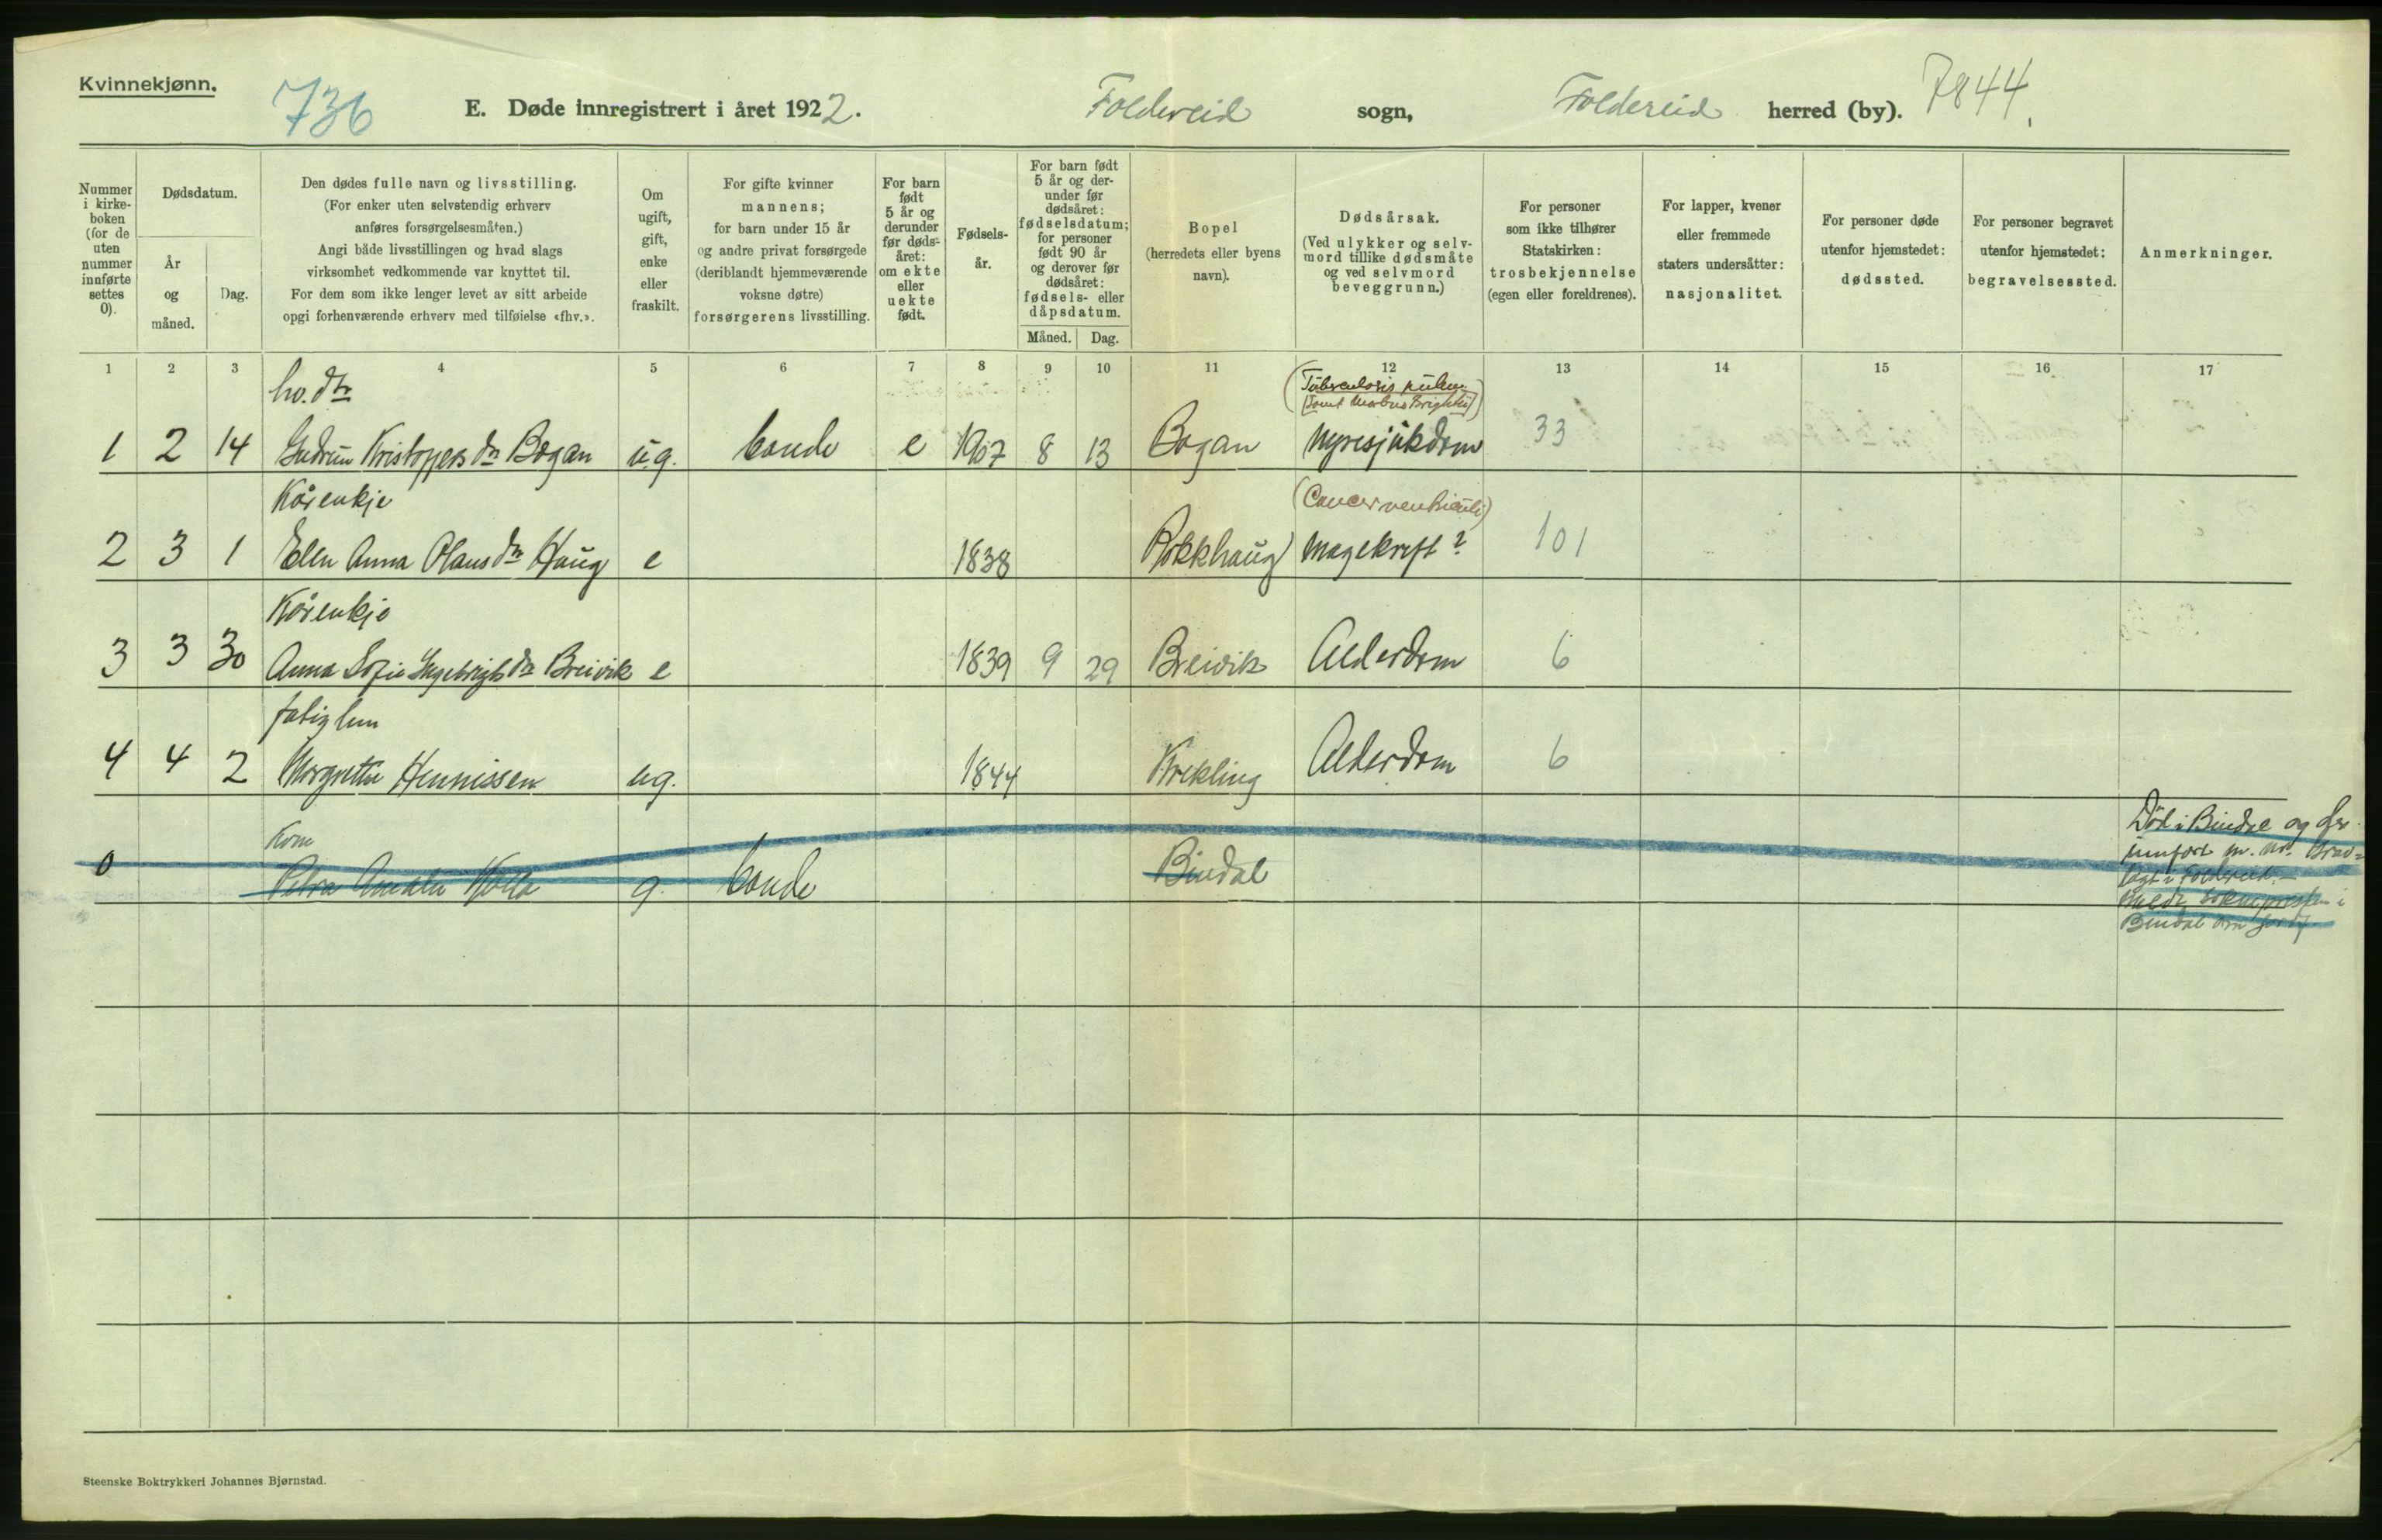 Kvinnekjønn.
736
E. Døde innregistrert i året 1922.
Foldereid sogn, Foldereid herred (by). 7844
Nummer i kirke-boken (for de uten nummer innførte settes 0).
Dødsdatum.
År og måned.
Dag.
Den dødes fulle navn og livsstilling.
(For enker uten selvstendig erhverv
anføres forsørgelsesmåten.)
Angi både livsstillingen og hvad slags
virksomhet vedkommende var knyttet til.
For dem som ikke lenger levet av sitt arbeide
opgi forhenværende erhverv med tilføielse «fhv.».
Om ugift, gift, enke eller fraskilt.
For gifte kvinner
mannens;
for barn under 15 år
og andre privat forsørgede
(deriblandt hjemmeværende
voksne døtre)
forsørgerens livsstilling.
For barn født 5 år og derunder før døds-året: om ekte eller uekte født.
Fødsels-år.
For barn født 5 år og der-under før dødsåret: fødselsdatum; for personer født 90 år og derover før dødsåret: fødsels- eller dåpsdatum.
Måned.
Dag.
Bopel
(herredets eller byens
navn).
Dødsårsak.
(Ved ulykker og selv-
mord tillike dødsmåte
og ved selvmord
beveggrunn.)
For personer
som ikke tilhører
Statskirken:
trosbekjennelse
(egen eller foreldrenes).
For lapper, kvener
eller fremmede
staters undersåtter:
nasjonalitet.
For personer døde
utenfor hjemstedet:
dødssted.
For personer begravet
utenfor hjemstedet:
begravelsessted.
Anmerkninger.
1 2 3 4 5 6 7 8 9 10 11 12 13 14 15 16 17
ho. dtr (Tuberculosis pulm.
(samt Morbus Brightii))
1 2 14 Gudrun Kristoffersdtr Bogan ug. bonde e 1907 8 13 Bogan Nyresjukdom 33
Kårenkje (Cancer ventriculi)
2 3 1 Ellen Anna Olausdtr Haug e 1838 Rokkhaug Magekreft? 101
Kårenkje
3 3 30 Anna Sofie Ingebrigtsdtr Breivik e 1839 9 29 Breivik Alderdom 6
fatiglem
4 4 2 Margrethe Hennissen ug. 1844 Krekling Alderdom 6
Kone
0 Petra Amalie Holla g. bonde Bindal
Död i Bindal og der
innfört m. nr.
lagt i Foldereid.
i
Bindal om
Steenske Boktrykkeri Johannes Bjørnstad.